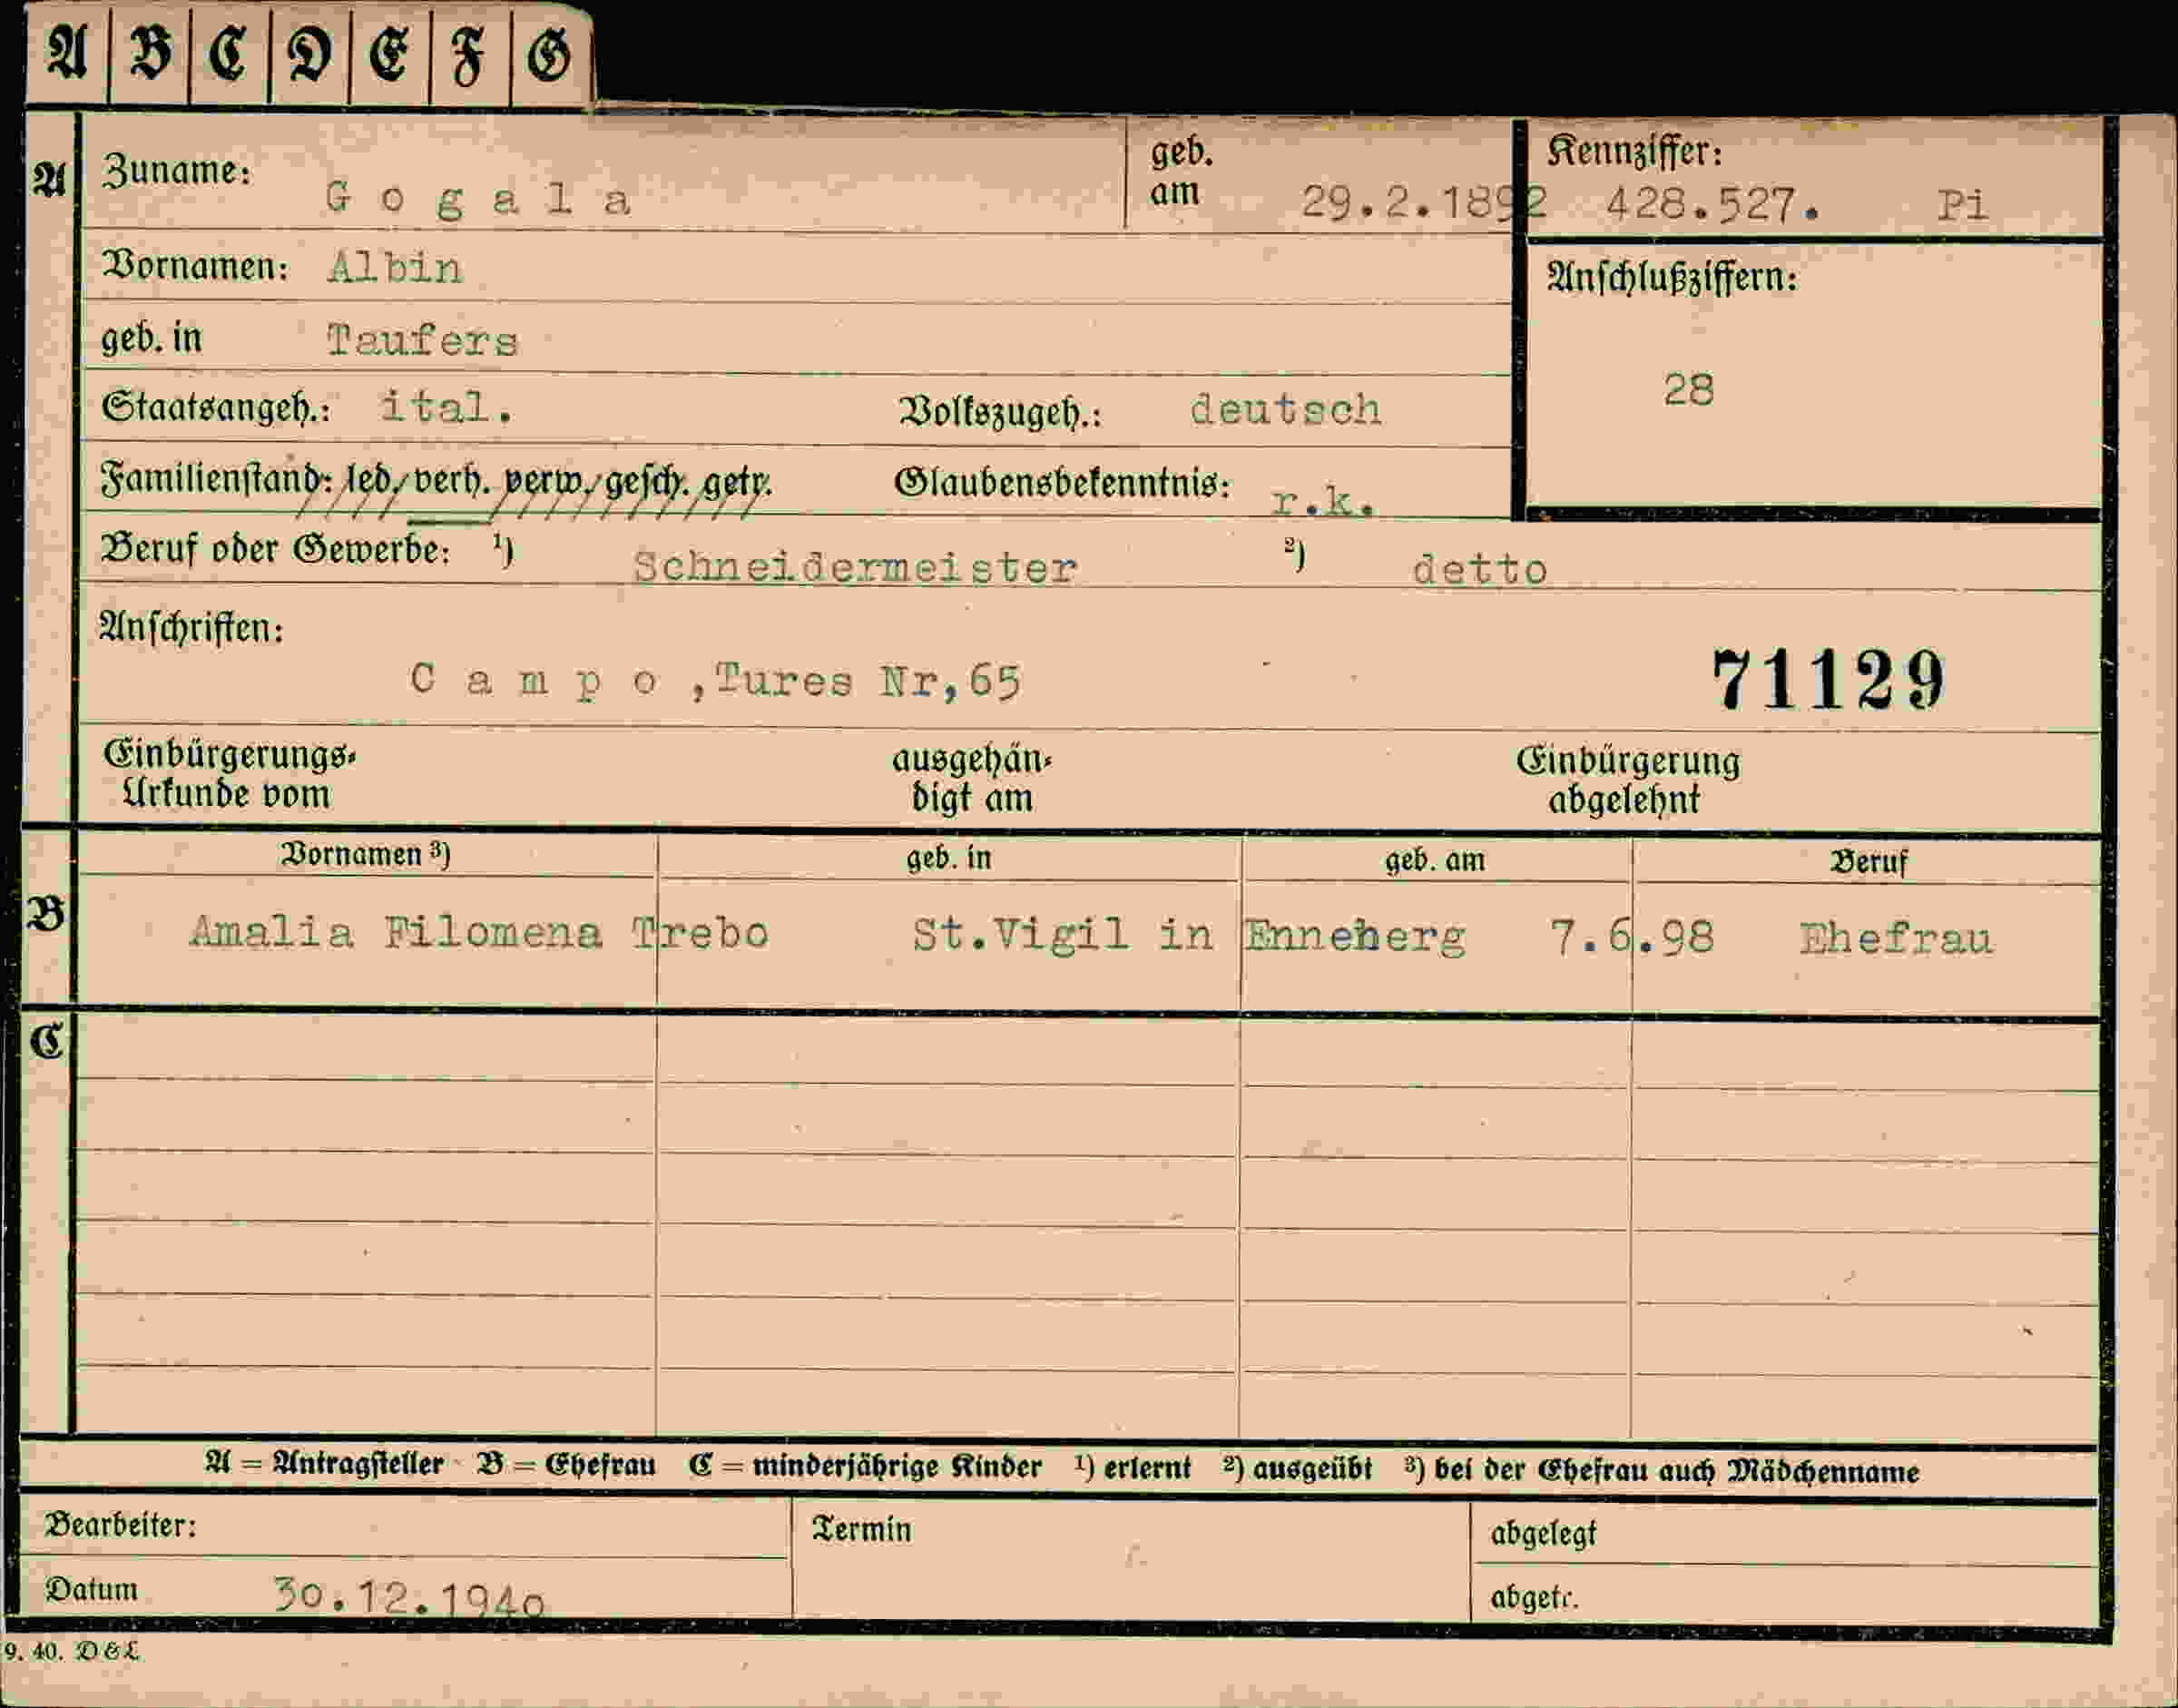 A B C D E F G
A Zuname: Gogala geb. am 29.2.1892 Kennziffer: 428.527. Pi
Vornamen: Albin Anschlußziffern:
geb. in Taufers
28
Staatsangeh.: ital. Volkszugeh.: deutsch
Familienstand: led. verh. verw. gesch. getr. Glaubensbekenntnis: r.k.
Beruf oder Gewerbe: ¹) Schneidermeister ²) detto
Anschriften:
Campo,Tures Nr,65 71129
Einbürgerungs-Urkunde vom ausgehändigt am Einbürgerung abgelehnt
Vornamen ³) geb. in geb. am Beruf
B Amalia Filomena Trebo St.Vigil in Enneberg 7.6.98 Ehefrau
C
A = Antragsteller B = Ehefrau C = minderjährige Kinder ¹) erlernt ²) ausgeübt ³) bei der Ehefrau auch Mädchenname
Bearbeiter: Termin abgelegt
Datum 30.12.1940 abgetr.
9. 40. D&L